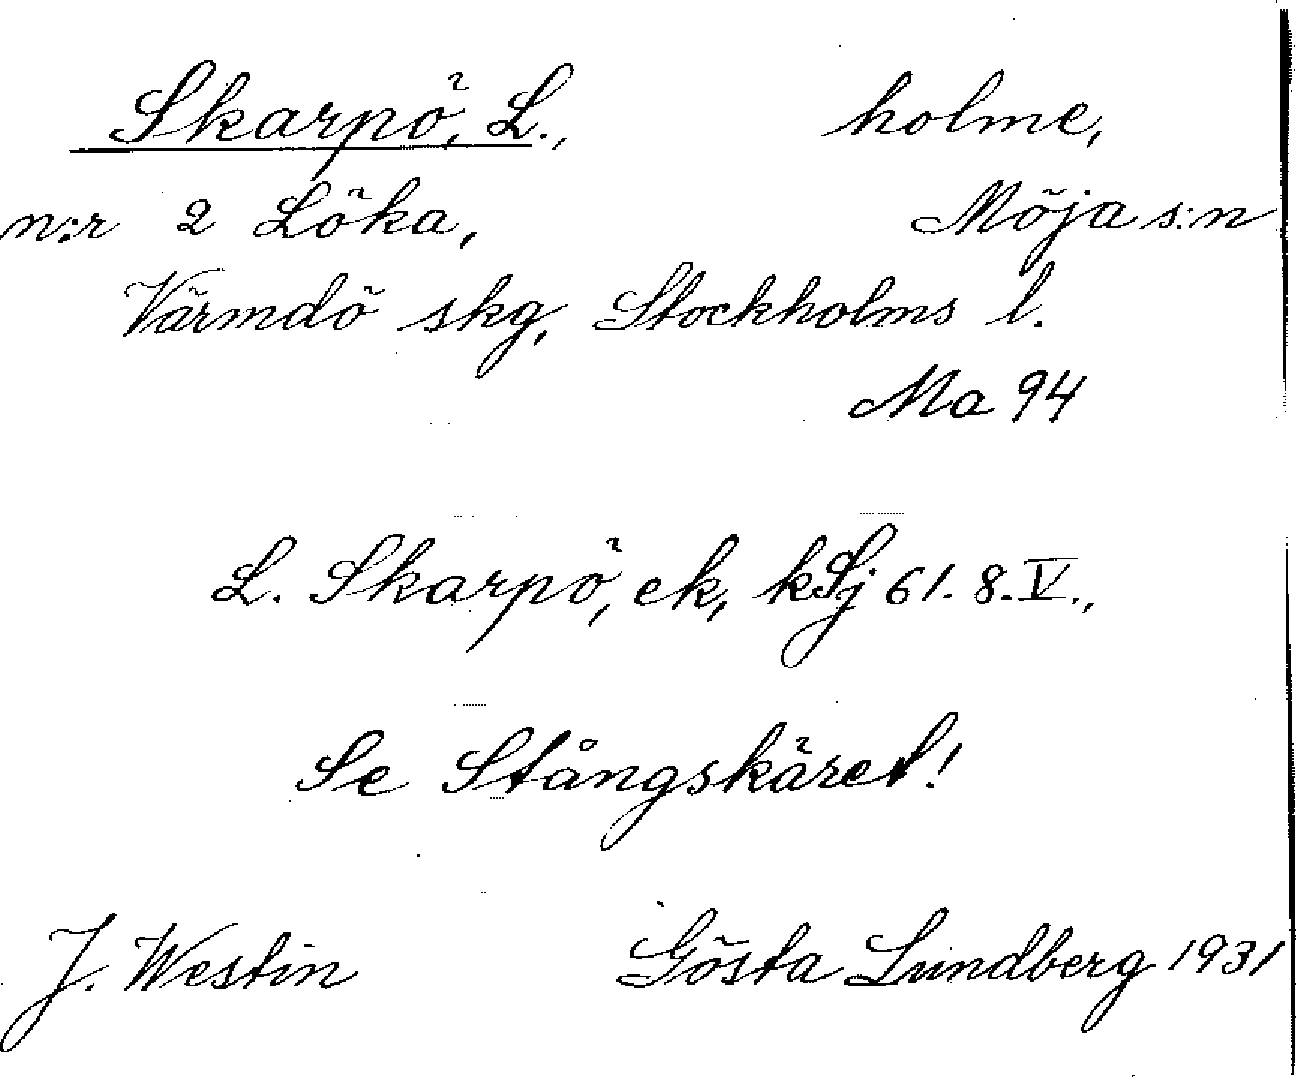 Skarpö, L., holme,
n:r 2 Löka, Möja s:n
Värmdö skg, Stockholms l.
Ma 94
L. Skarpö, ek, kSj 61. 8. V.,
Se Stångskäret!
J. Westin Gösta Lundberg 1931